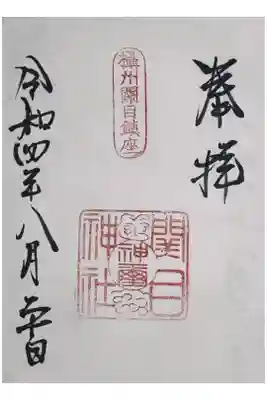 奉拝
攝州関目鎮座
関目
神璽
神社
令和四年八月日